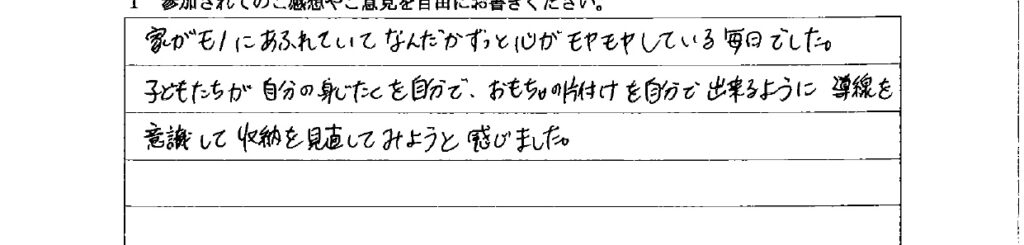 1 参加されてのご感想やご意見を自由にお書きください。
家がモノにあふれていてなんだかずっと心がモヤモヤしている毎日でした。
子どもたちが自分の身じたくを自分で、おもちゃの片付けを自分で出来るように導線を
意識して収納を見直してみようと感じました。